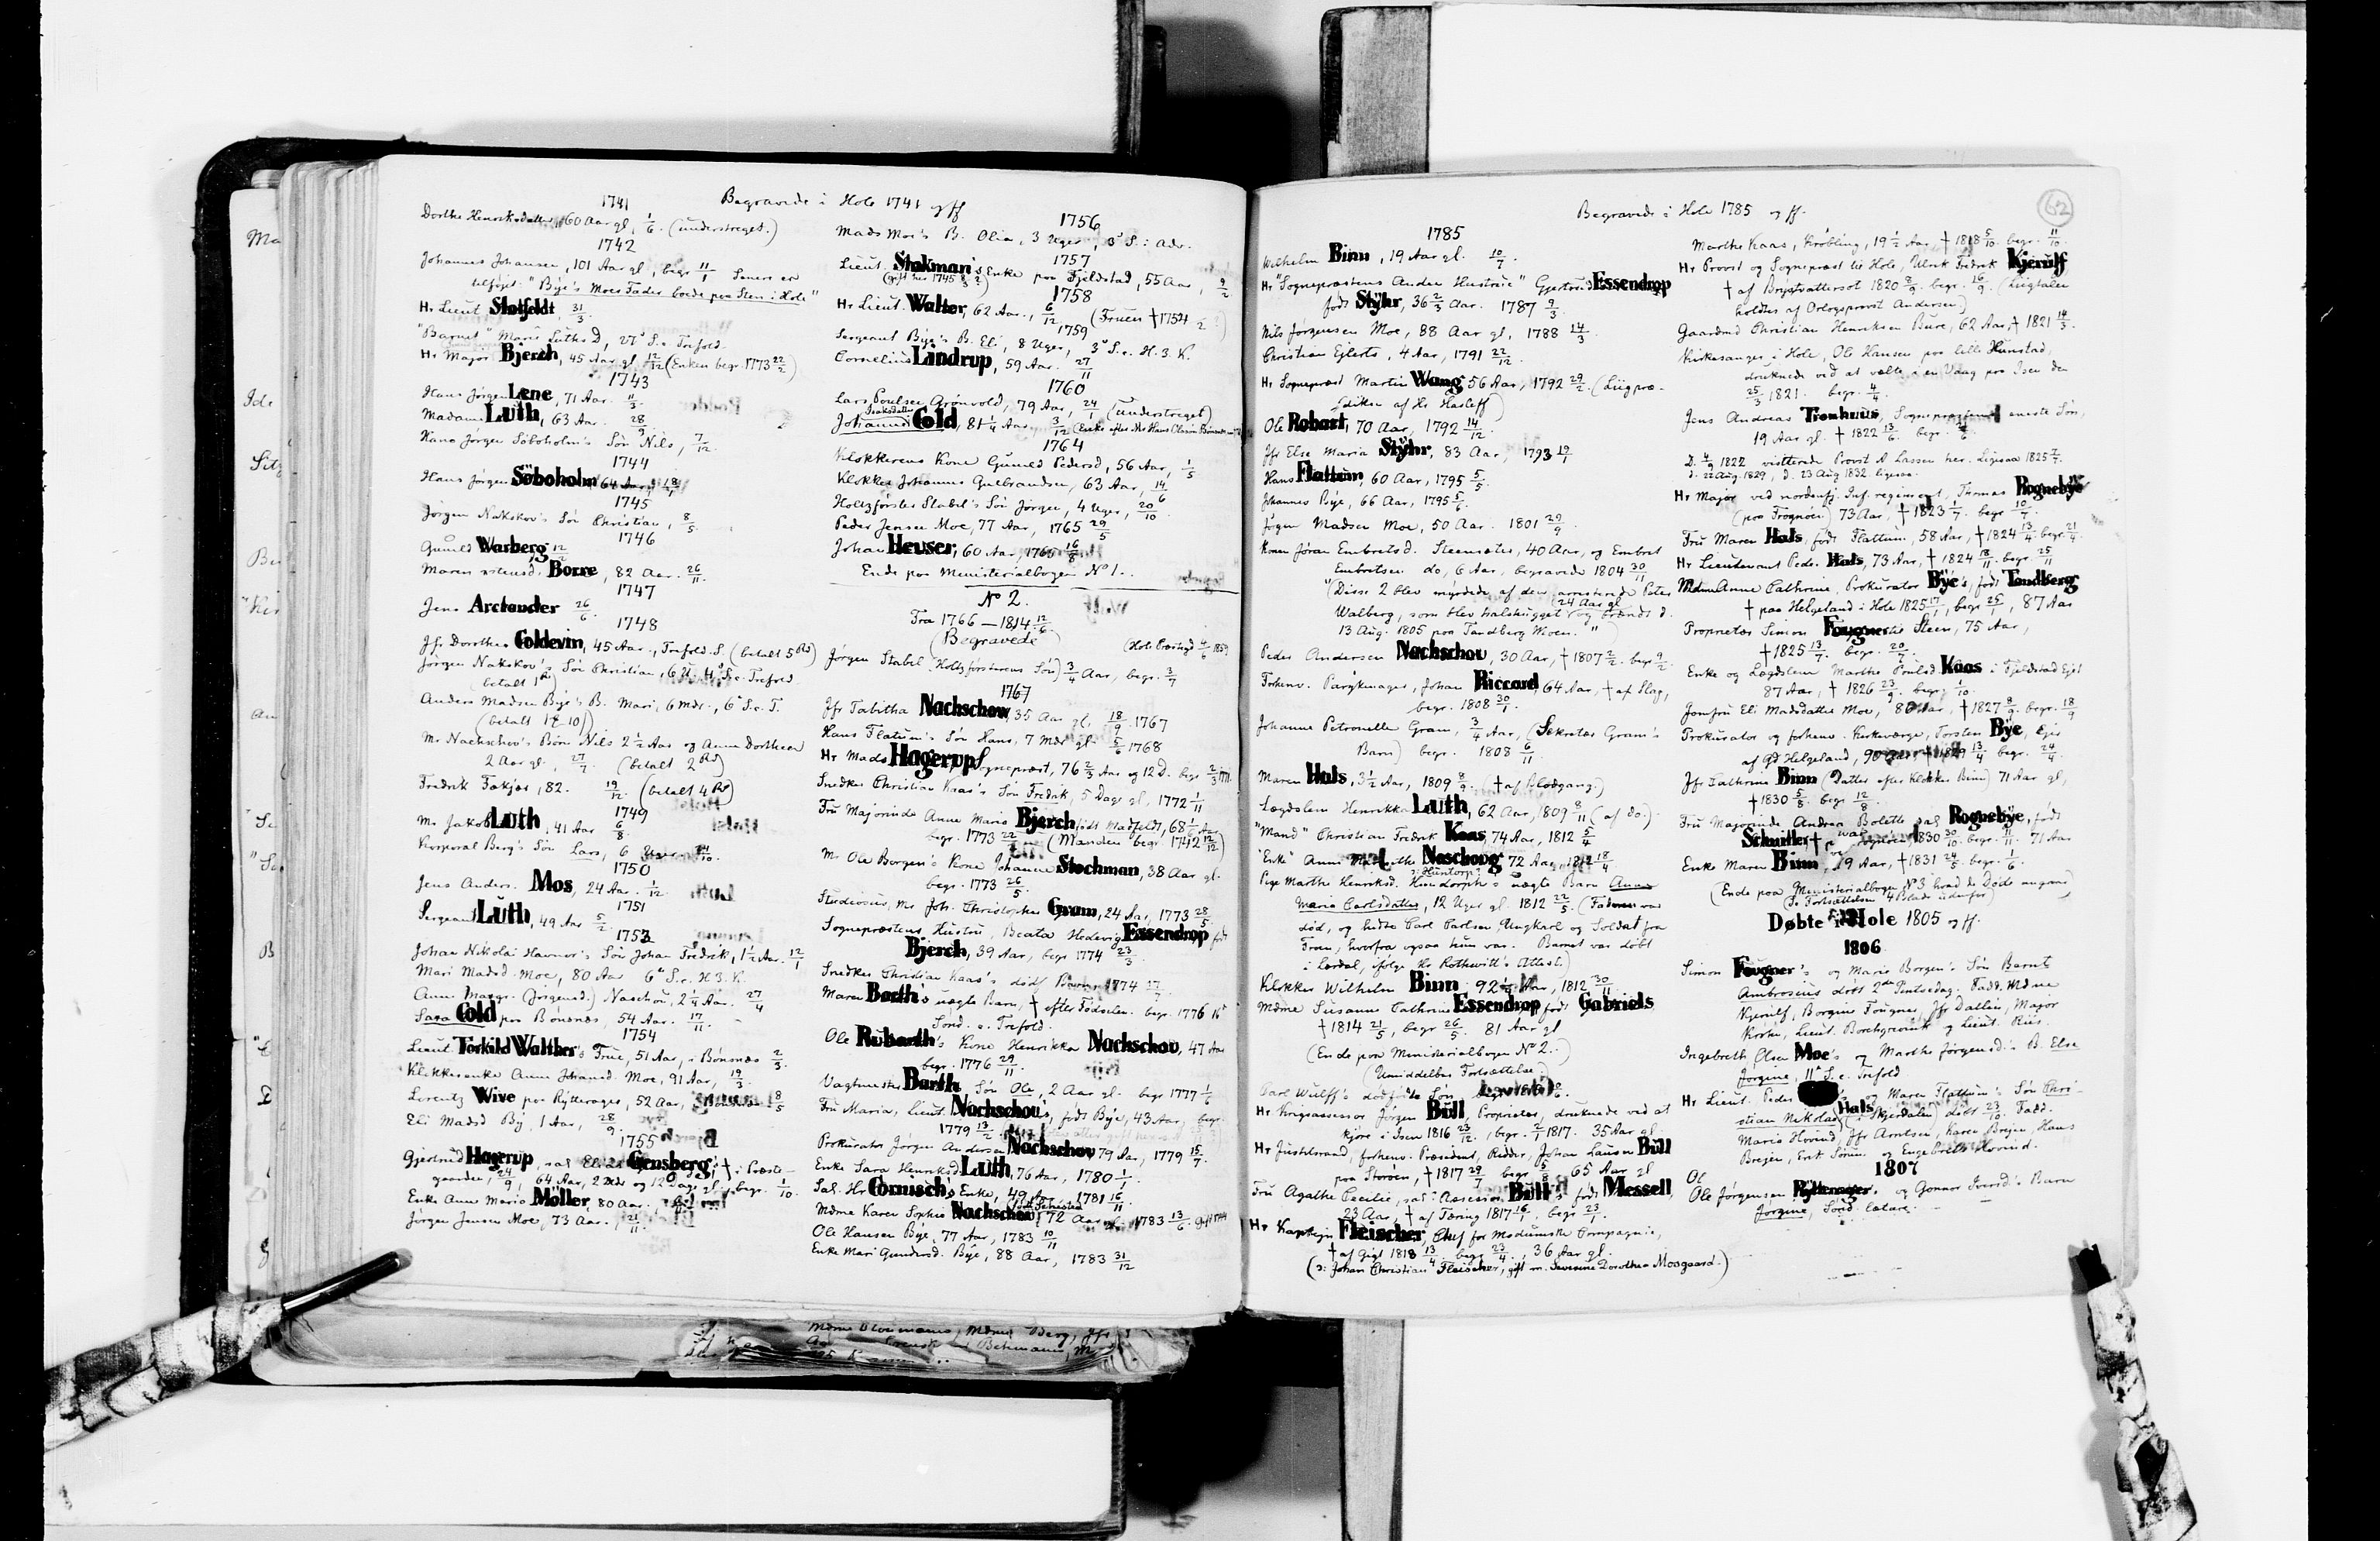 Begravede i Hole 1741 og ff
1741
Dorthe Henriksdatter, 60 Aar gl, 1/6. (understreget.)
1742
Johannes Johansen, 101 Aar gl, begr 11/1 Senere er
tilføjet: "Bye's Moes Fader boede paa Sten i Hole"
Hr Lieut Slotfeldt, 31/3.
"Barnet" Marie Luths D, 27d S. e. Trefold.
Hr Major Bjerch, 45 Aar gl 12/12 (Enken begr. 1773 22/2)
1743
Hans Jørgen Lene, 71 Aar. 11/3.
Madam Luth, 63 Aar. 28/9.
Hans Jørgen Söboholm's Søn Nils, 7/12.
1744
Hans Jørgen Söboholm 64 Aar,
1745
Jørgen Nakskov's Søn Christian, 8/5.
1746
Gunild Warberg 12/2
Maren Borre, 82 Aar. 26/11.
1747
Jens Arctander 26/6.
1748
Jfr Dorthea Coldevin, 45 Aar., Trefold. S. (betalt 5 Rd)
Jørgen Nakskov's Søn Christian, 6 U. 4d S. e. Trefold
(betalt 1 Rd)
Anders Madsen Bye's B. Mari, 6 Mdr., 6d S. e. T.
(betalt
Mr Nachschov's Børn Nils 2 1/2 Aar og Anne Dorthea
2 Aar gl., 27/7. (betalt 2 Rd)
Fredrik Fokjær, 82. 19/12. (betalt 4 Rd)
1749
Mr Jakob Luth, 41 Aar 6/8.
Korporal Berg's Søn Lars, 6 Uger
1750
Jens Anders. Mos, 24 Aar. 1/12.
1751
Sergeant Luth, 49 Aar 5/2.
1753
Johan Nikolai Havnor's Søn Johan Fredrik, 1 1/2 Aar. 12/1
Mari Madsd. Moe, 80 Aar 6d S. e. H. 3. K.
Anne Margr. (Jørgensd.) Naschou, 2 1/4 Aar. 27/4
Sara Cold paa Bønsnæs, 54 Aar. 17/11.
1754
Lieut. Torkild Walther's Frue, 51 Aar, i Bønsnæs 2/3.
Klokkerenke Anne Johansd. Moe, 91 Aar, 19/3.
Lorentz Wive paa Rytterager, 52 Aar, 8/5
Eli Madsd Bÿ, 1 Aar, 28/9.
1755
Gjertrud Hagerup, sal. Gensberg, † i Præste-
gaarden, 24/9, 64 Aar, 2 Mdr og 12 Dage gl., begr. 1/10.
Enke Anne Maria Möller, 80 Aar.
Jørgen Jensen Moe, 73 Aar. 21/11.
1756
Mads Moe's B. Olia, 3 Uger, 3d S. i Adv.
1757
Lieut. Stokman's Enke paa Fjeldstad, 55 Aar, 9/2
1758
Hr Lieut. Walter, 62 Aar., 6/12 (Fruen † 1754
1759
Sergeant Bye's B. Eli, 8 Uger, 3d S. e. H. 3. K.
Cornelius Lindrup, 59 Aar. 27/11
1760
Lars Poulsen Grønvold, 79 Aar, 24/1 (understreget)
Johanne Isaksdatter Cold, 81 1/4 Aar, 3/12 (Enke efter Mr Hans Olavsen Bønsnæs
1764
Klokkerens Kone Gunild Pedersd, 56 Aar, 1/5
Klokker Johannes Gulbrandsen, 63 Aar, 14/6
Holtzførster Stabel's Søn Jørgen, 4 Uger, 20/10.
Peder Jensen Moe, 77 Aar, 1765 29/5
Johan Heuser, 60 Aar, 1765 16/8
Ende paa Ministerialbogen No 1.
No 2.
Fra 1766 — 1814 12/6.
(Begravede)
(Hole Præstegd 4/6 1859
Jørgen Stabel (Holtzførsterens Søn) 3/4 Aar, begr. 3/7
1767
Jfr Tabitha Nachschow, 35 Aar gl, 18/9. 1767
Hans Flatum's Søn Hans, 7 Mdr gl. 5/6 1768
Hr Mads Hagerup, Sognepræst, 76 2/3 Aar og 12 D. begr. 2/3 1771.
Snedker Christian Kaas's Søn Fredrik, 5 Dage gl, 1772 1/11
Fru Majorinde Anne Marie Bjerch, født Madfeldt, 68 1/6 Aar
begr. 1773 22/2 (Manden begr. 1742 12/12)
Mr Ole Borgen's Kone Johanne Stochman, 38 Aar gl.
begr. 1773 26/5.
Studiosus, Mr Joh. Christopher Gram, 24 Aar, 1773 28/5
Sognepræstens Hustru, Beata Hedevig Essendrop født
Bjerch, 39 Aar, begr 1774 23/3.
Snedker Christian Kaas's dødf Barn 1774 17/7.
Maren Barth's uægte Barn, † efter Fødselen. begr. 1776 16d
Sønd. e. Trefold.
Ole Rubarth's Kone Henrikka Nachschov, 47 Aar
begr. 1776 29/11.
Vagtmester Barth Søn Ole, 2 Aar gl. begr 1777 1/6
Fru Maria, Lieut. Nachschou's, født Bÿe, 43 Aar, begr.
1779 13/2
Prokurator Jørgen Andersen Nachschov 79 Aar, 1779 15/7.
Enke Sara Henriksd Luth, 76 Aar, 1780 1/1.
Sal. Hr Cornisch's Enke, 49 Aar 1781 16/11
Mdme Karen Sophie Nachschow, 72 Aar 1783 13/6.
Ole Hansen Bÿe, 77 Aar, 1783 10/11
Enke Mari Gundersd. Bÿe, 88 Aar, 1783 31/12
Begravede i Hole 1785 og ff.
62
1785
Wilhelm Binn, 19 Aar gl. 10/7.
Hr "Sognepræstens Anden Hustrue" Gjertrud Essendrop
født Stÿhr, 36 2/3 Aar. 1787 9/3
Nils Jørgensen Moe, 88 Aar gl, 1788 14/3.
Christian Ejlerts, 4 Aar, 1791 22/12.
Hr Sognepræst Martin Wang 56 Aar, 1792 29/2. (Liigpræ-
diken af Hr Hasleff)
Ole Robart, 70 Aar, 1792 14/12.
Jfr Else Maria Stÿhr, 83 Aar, 1793 19/1
Hans Flattum, 60 Aar, 1795 5/5.
Johannes Bÿe, 66 Aar, 1795 5/6.
Jørgen Madsen Moe, 50 Aar. 1801 29/9.
Konen Jøran Embretsd. Steensæter, 40 Aar, og Embret
Embretsen do, 6 Aar, begravede 1804 30/11
"(Disse 2 blev myrdede af den arresterede Peter
Walberg, som blev halshugget (24 Aar gl og brændt d.
13 Aug. 1805 paa Tandberg Moen. ")
Peder Andersen Nachschov, 30 Aar, † 1807 2/2. begr 9/2.
Forhenv. Parykmager, Johan Riccard, 64 Aar, † af Slag,
begr. 1808 30/1.
Johanne Petronelle Gram, 3/4 Aar, (Sekretær Gram's
Barn) begr. 1808 6/11.
Maren Hals, 3 1/2 Aar, 1809 8/9. († af Blodgang.)
Lægdslem Henrikka Luth, 62 Aar, 1809 8/11 (af do.)
"Mand" Christian Fredrik Kaas, 74 Aar, 1812 5/4
"Enke" Anne Naschoug 72 Aar, 1812 18/4
Pige Marthe Henriksd. Huntorph's uægte Barn Anne
Maria Carlsdatter, 12 Uger gl. 1812 22/5. (Faderen var
død, og hedte Carl Carlsen, Ungkarl og Soldat fra
Fron, hvorfra ogsaa hun var. Barnet var døbt
i Lærdal, ifølge Hr Rothewitt's Attest.)
Klokker Wilhelm Binn, 92 Aar, 1812 30/11
Mdme Susanne Cathrine Essendrop født Gabriels
† 1814 21/5, begr 26/5. 81 Aar gl
(Ende paa Ministerialbogen No 2.)
(Umiddelbar Fortsættelse)
Carl Wulff's dødfødte Søn
Hr Krigsassessor Jørgen Büll, Proprietær, druknede ved at
kjøre i Isen 1816 23/12., begr. 2/1 1817. 35 Aar gl.
Hr Justitsraad, forhenv. Præsident, Ridder, Johan Lausen Büll
paa Storøen, † 1817 29/7 begr 5/8. 65 Aar gl
Fru Agathe Cecilie, sal: Assessor Büll's født Messell,
23 Aar, † af Tæring 1817 16/1, begr 23/1.
Hr Kaptejn Fleischer, Chef for Modumske Compagnie,
† af Gigt 1818 13/4. begr 23/4., 36 Aar gl.
(ɔ: Johan Christian Fleischer, gift m. Severine Dorothea Mosgaard.)
Marthe Kaas, Krøbling, 19 1/2 Aar † 1818 5/10. begr. 11/10.
Hr Provst og Sognepræst til Hole, Ulrik Fredrik Kjerulf
† af Brystvattersot 1820 8/9. begr. 16/9. (Liigtalen
holdtes af Orlogsprovst Andersen)
Gaardmd Christian Henriksen Bure, 62 Aar, † 1821 14/3.
Kirkesanger i Hole, Ole Hansen paa lille Hunstad,
druknede ved at vælte i en Vaag paa Isen den
25/3 1821. begr. 4/4.
Jens Andreas Tronhuus, Sognepræstens eneste Søn,
19 Aar gl. † 1822 13/6. begr.
D. 4/9 1822 visiterede Provst A Lassen her. Ligesaa 1825 7/7.
d. 22 Aug 1829, d. 23 Aug 1832 ligesaa
Hr Major ved nordenfj. Inf. regiment, Thomas Rognebÿe
(paa Frognøen) 73 Aar, † 1823 1/7. begr 10/7.
Fru Maren Hals, født Flattum, 58 Aar, † 1824 13/4. begr. 21/4.
Hr Lieutenant Peder Hals, 73 Aar, † 1824 18/11. begr. 25/11
Mdme Anne Cathrine, Prokurator Bÿe's, født Tandberg
† paa Helgeland i Hole 1825 17/1, begr 25/1, 87 Aar
Proprietær Simon Fougner Steen, 75 Aar,
† 1825 13/7. begr. 20/7.
Enke og Lægdslem Marthe Poulsd Kaas i Fjeldstad Ejet
87 Aar, † 1826 23/9. begr. 1/10.
Jomfru Eli Madsdatter Moe, Aar, † 1827 8/9. begr. 18/9
Prokurator og forhenv. Kirkeværge, Torsten Bÿe, Ejer
af Gd Helgeland, 13/4 begr. 24/4.
Jfr Cathrine Binn (Datter efter Klokker Binn) 71 Aar gl,
† 1830 5/8. begr 12/8.
Fru Majorinde Andrea Bolette sal Rognebÿe, født
Schnitler, † paa Frognøen, 1830 30/10. begr. 11/11. 71 Aar
Enke Maren Binn, Aar, † 1831 24/5. begr. 1/6.
(Ende paa Ministerialbogen No 3 hvad de Døde angaar)
(Se Fortsættelsen 4 Blade udenfor)
Døbte i Hole 1805 og ff.
1806
Simon Fougner's og Marie Borgen's Søn Barnt
Ambrosius døbt 2den Pintsedag. Fadd. Mdme
Kjerulf, Borgine Fougner, Jfr Dattin, Major
Krohn, Lieut. Borchgrevink og Lieut. Riis.
Ingebreth Olsen Moe's og Marthe Jørgensd.'s B. Else
Jørgine, 11d S. e. Trefold
Hr Lieut. Peder Hals' og Maren Flattum's Søn Chri-
stian Nikolai (i Skjerdalen) døbt 23/10. Fadd.
Maria Hvind, Jfr Arntsen, Karen Brejen, Hans
Brejen, Erik Sørum og Engebreth Hvorvind.
1807
Ol
Ole Jørgensen Rytterager og Gonnor Iversd's Barn
Jørgine, Sønd. lætare.